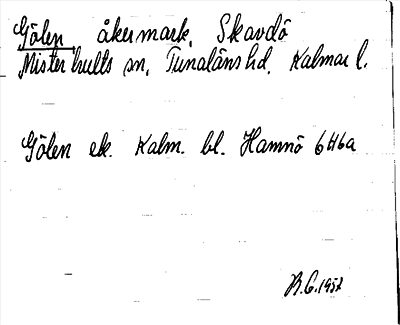 Gölen åkermark, Skavdö
Misterhults sn, Tunaläns hd, Kalmar l.
Gölen ek. Kalm. bl. Hamnö 6H6a
B.G. 1957